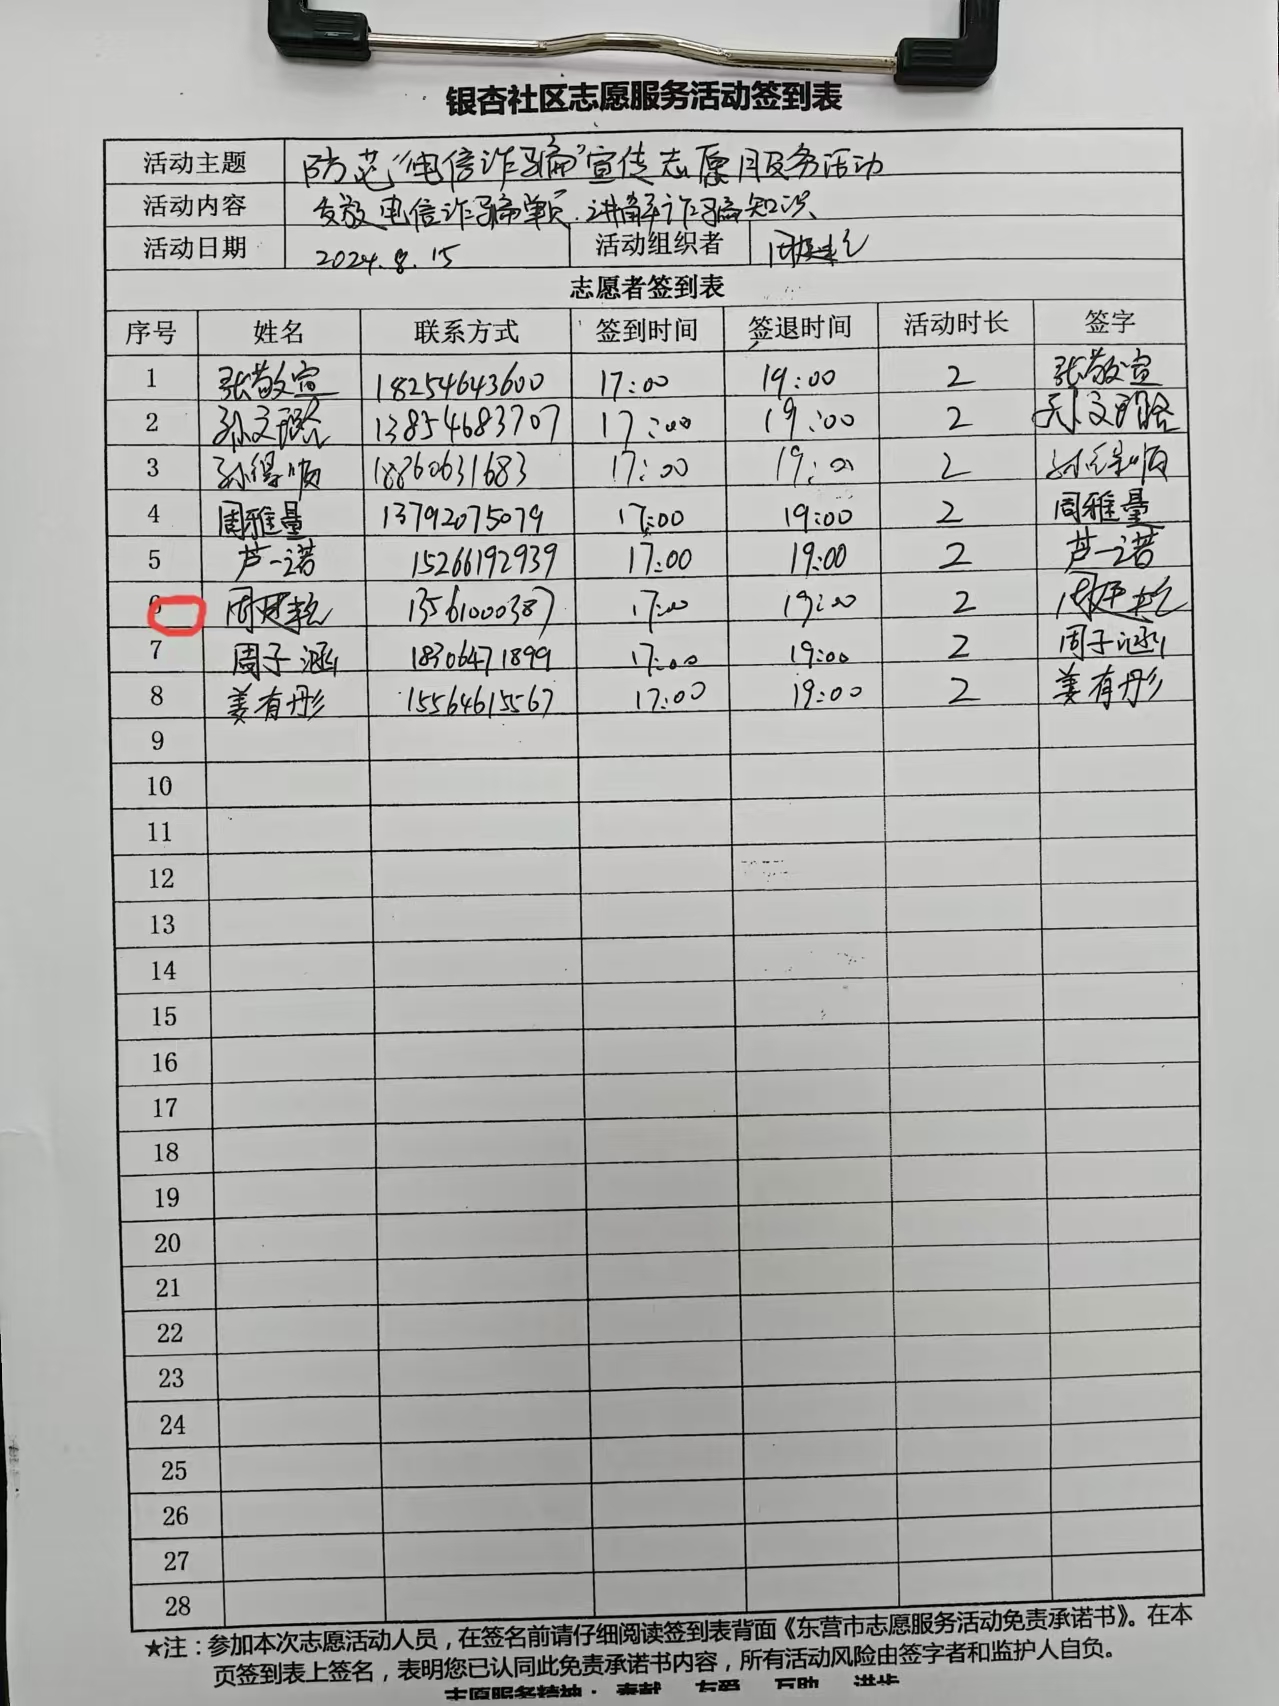 银杏社区志愿服务活动签到表
活动主题 防范“电信诈骗”宣传志愿服务活动
活动内容 发放电信诈骗单页.讲解诈骗知识
活动日期 2024.8.15 活动组织者
志愿者签到表
序号 姓名 联系方式 签到时间 签退时间 活动时长 签字
1 张敬宣 18254643600 17:00 19:00 2 张敬宣
2 孙文 13854683707 17:00 19:00 2 孙文
3 孙得顺 18860631683 17:00 19:00 2 孙得顺
4 周雅量 13792075079 17:00 19:00 2 周雅量
5 芦一诺 15266192939 17:00 19:00 2 芦一诺
6 周建 13561000387 17:00 19:00 2
7 周子涵 18306471899 17:00 19:00 2 周子涵
8 姜有彤 15564615567 17:00 19:00 2 姜有彤
9
10
11
12
13
14
15
16
17
18
19
20
21
22
23
24
25
26
27
28
★注：参加本次志愿活动人员，在签名前请仔细阅读签到表背面《东营市志愿服务活动免责承诺书》。在本
页签到表上签名，表明您已认同此免责承诺书内容，所有活动风险由签字者和监护人自负。
志愿服务精神：奉献 友爱 互助 进步